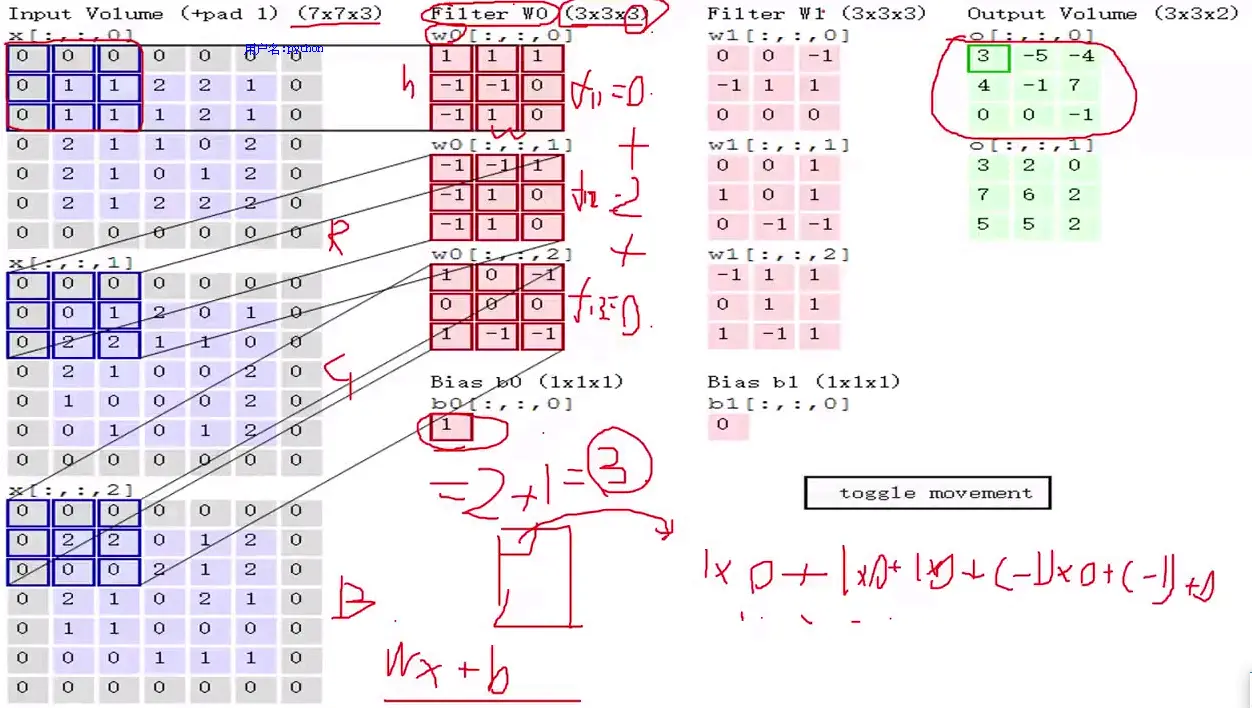 Input Volume (+pad 1) (7x7x3)
x[:,:,0]
用户名:python
0 0 0 0 0 0 0
0 1 1 2 2 1 0
0 1 1 1 2 1 0
0 2 1 1 0 2 0
0 2 1 0 1 2 0
0 2 1 2 2 2 0
0 0 0 0 0 0 0
R
x[:,:,1]
0 0 0 0 0 0 0
0 0 1 2 0 1 0
0 2 2 1 1 0 0
0 2 1 0 0 2 0
0 1 0 0 0 2 0
0 0 1 0 1 2 0
0 0 0 0 0 0 0
G
x[:,:,2]
0 0 0 0 0 0 0
0 2 2 0 1 2 0
0 0 0 2 1 2 0
0 2 1 0 2 1 0
0 1 1 0 0 0 0
0 0 0 1 1 1 0
0 0 0 0 0 0 0
B
Filter W0 (3x3x3)
w0[:,:,0]
1 1 1
-1 -1 0
-1 1 0
h
w
=0
+
w0[:,:,1]
-1 -1 1
-1 1 0
-1 1 0
2
+
w0[:,:,2]
1 0 -1
0 0 0
1 -1 -1
=0
Bias b0 (1x1x1)
b0[:,:,0]
1
=2+1=3
Wx+b
Filter W1 (3x3x3)
w1[:,:,0]
0 0 -1
-1 1 1
0 0 0
w1[:,:,1]
0 0 1
1 0 1
0 -1 -1
w1[:,:,2]
-1 1 1
0 1 1
1 -1 1
Bias b1 (1x1x1)
b1[:,:,0]
0
Output Volume (3x3x2)
o[:,:,0]
3 -5 -4
4 -1 7
0 0 -1
o[:,:,1]
3 2 0
7 6 2
5 5 2
toggle movement
1x0+1x0+1x0+(-1)x0+(-1)+0